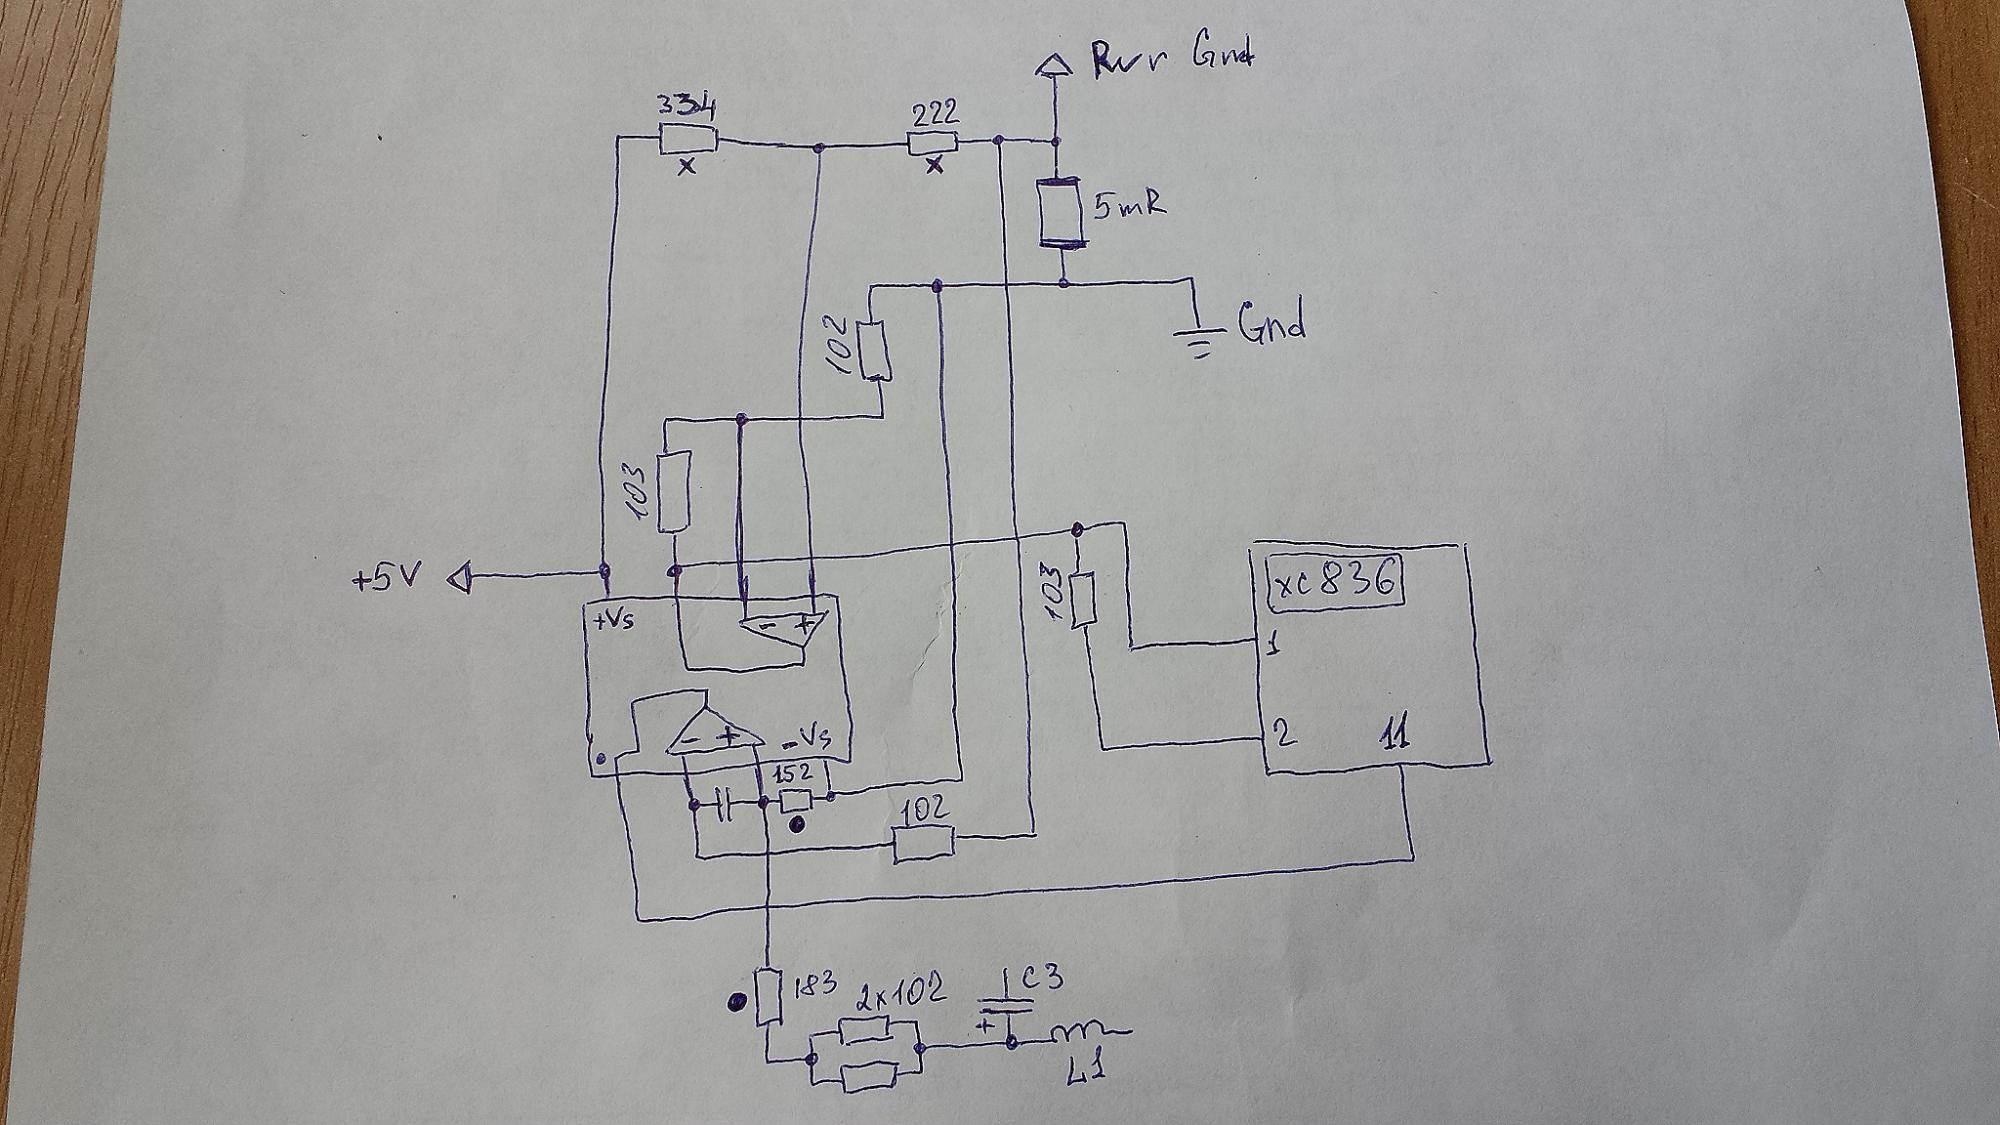 Pwr Gnd
334
222
x
x
5mR
102
Gnd
103
+5V
103
xc836
+Vs
- +
1
- +
-Vs
2
11
152
102
183
2x102
C3
+
L1